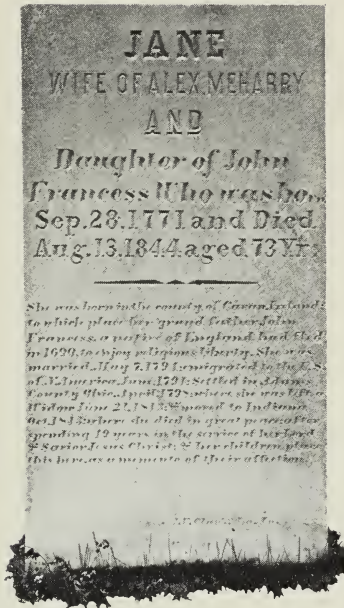 JANE
WIFE OF ALEX. MEHARRY
AND
Daughter of John
Francess Who was born
Sep. 28. 1771 and Died
Aug. 13. 1844 aged 73 Yr
She was born in the county of Cavan, Ireland;
to which place her grand father John
Francess, a native of England had fled
in 1690, to enjoy religious liberty. She was
married, May 7, 1794, emigrated to the U. S.
of N. America, June Settled in Adams
County Ohio, April, where she was left a
Widow June 21, 1813; & moved to Indiana
Oct. where she died in great peace, after
spending years in the service of her Lord
& Savior Jesus Christ; & her children place
this here, as a momento of their affection